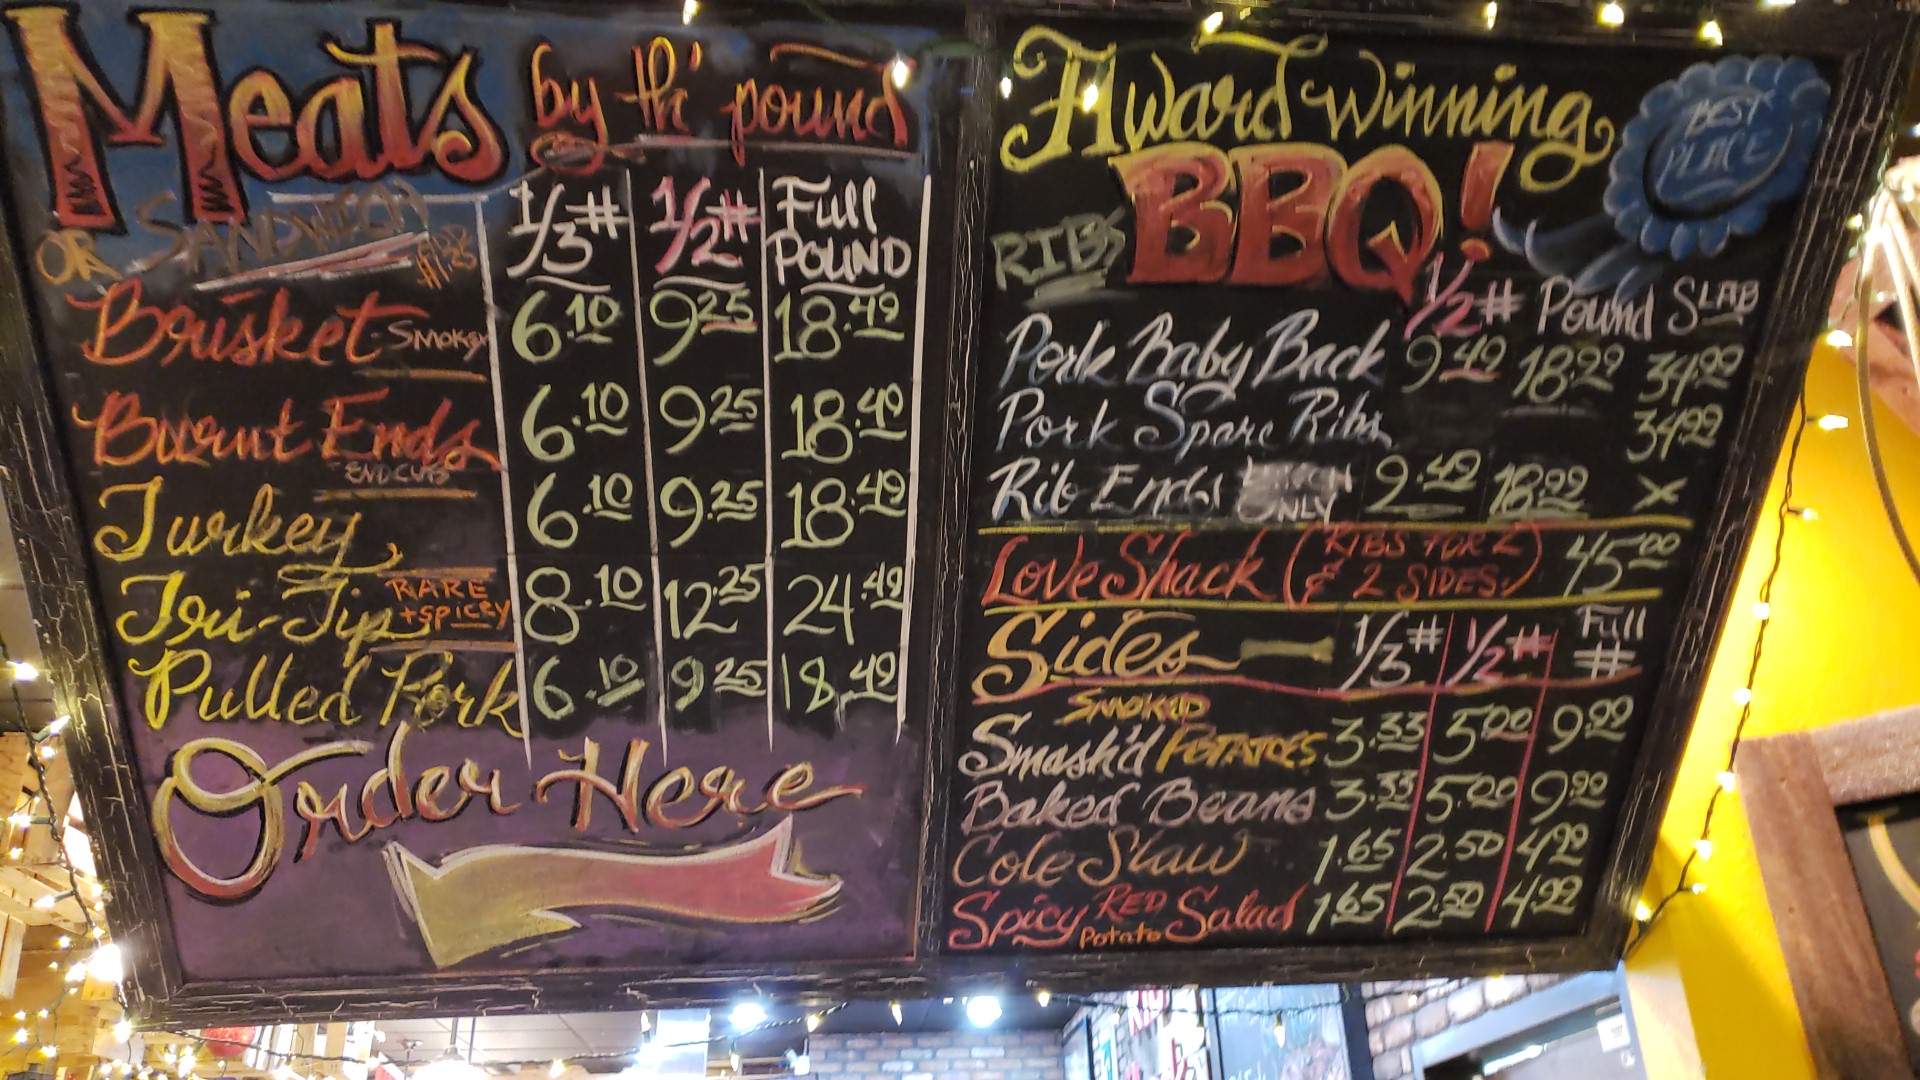 Meats by th' pound
OR SANDWICH ADD $1.25
1/3# 1/2# Full POUND
Brisket - SMOKEY 6.10 9 25 18.49
Burnt Ends 6.10 9 25 18.49
END CUTS
Turkey 6.10 9.25 18.49
Tri-Tip RARE + SPICEY 8.10 12.25 24.49
Pulled Pork 6.10 9 25 18.49
Order Here
Award winning
BBQ!
BEST PLACE
RIBS 1/2# Pound SLAB
Pork Baby Back 9 49 18.99 34.99
Pork Spare Ribs 34 99
Rib Ends ONLY 9.49 18.99 X
Love Shack (RIBS FOR 2 & 2 SIDES) 45 00
Sides 1/3# 1/2# Full #
Smash'd SMOKED POTATOES 3.33 5 00 9 99
Baked Beans 3.33 5.00 9 99
Cole Slaw 1.65 2.50 4 99
Spicy RED Potato Salad 1 65 2.50 4.99